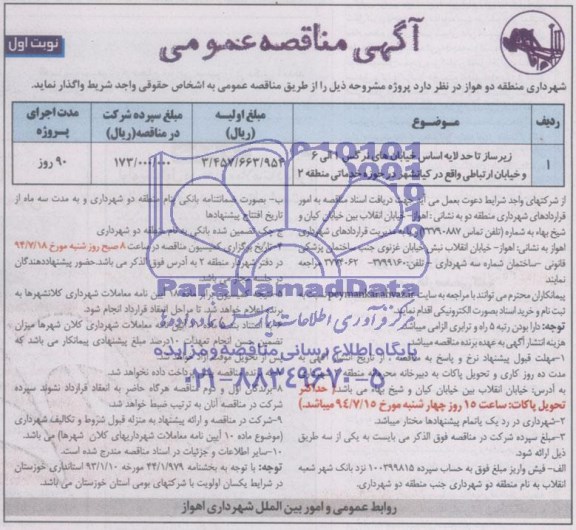 آگهی مناقصه عمومی
نوبت اول
شهرداری منطقه دو هواز در نظر دارد پروژه مشروحه ذیل را از طریق مناقصه عمومی به اشخاص حقوقی واجد شریط واگذار نماید.
ردیف موضوع مبلغ اولیه (ریال) مبلغ سپرده شرکت در مناقصه(ریال) مدت اجرای پروژه
۱ زیرساز تا حد لایه اساس خیابان های نرگس ۱ الی ۶ و خیابان ارتباطی واقع در کیانشهر در حوزه خدماتی منطقه ۲ ۳/۴۵۷/۶۶۳/۹۵۴ ۱۷۳/۰۰۰/۰۰۰ ۹۰ روز
از شرکتهای واجد شرایط دعوت بعمل می آید جهت دریافت اسناد مناقصه به امور
قراردادهای شهرداری منطقه دو به نشانی : اهواز- خیابان انقلاب بین خیابان کیان و
شیخ بهاء به شماره (تلفن ۳۷۷۹۰۸۸۷) مدیریت قراردادهای شهرداری
اهواز به نشانی: اهواز- خیابان انقلاب نبش خیابان غزنوی جنب ساختمان پزشکی
قانونی -ساختمان شماره سه شهرداری - تلفن: مراجعه
نمایند
پیمانکاران محترم می توانند با مراجعه به سایت
ثبت نام و خرید اسناد بصورت الکترونیکی اقدام نمایند.
توجه: دارا بودن رتبه ۵ راه و ترابری الزامی میباشد.
هزینه انتشار آگهی به عهده برنده مناقصه میباشد.
۱-مهلت قبول پیشنهاد نرخ و پاسخ به مناقصه : از تاریخ انتشار آگهی به
مدت ده روز کاری و تحویل پاکات به دبیرخانه محرمانه منطقه
به آدرس: خیابان انقلاب بین خیابان کیان و شیخ بهاء می باشد. حداکثر
تحویل پاکات: ساعت ۱۵ روز چهار شنبه مورخ ۹۴/۷/۱۵ میباشد.)
۲-شهرداری در رد یک یاتمام پیشنهادها مختار میباشد.
۳-مبلغ سپرده شرکت در مناقصه فوق الذکر می بایست به یکی از سه طریق
ذیل ارائه شود.
الف- فیش واریز مبلغ فوق به حساب سپرده ۱۰۰۳۹۹۸۱۵ نزد بانک شهر شعبه
انقلاب به نام منطقه دو شهرداری جنب منطقه دو شهرداری.
ب- بصورت ضمانتنامه بانکی بنام منطقه دو شهرداری و به مدت سه ماه از
تاریخ افتتاح پیشنهادها
ج- چک تضمین شده بانکی به نام منطقه دو شهرداری
۴-تاریخ برگزاری کمیسیون مناقصه در ساعت ۸ صبح روز شنبه مورخ ۹۴/۷/۱۸
در دفتر شهردار منطقه ۲ به آدرس فوق الذکر می باشد.حضور پیشنهاددهندگان
آیین نامه معاملات شهرداری کلانشهرها به
برنده اعلام خواهد شد. تا مراحل انعقاد قرارداد انجام شود.
معاملات شهرداری کلان شهرها میزان
تضمین حسن انجام تعهدات ۱۰درصد مبلغ پیشنهادی پیمانکار می باشد که
پرداخت داده نخواهد شد.
۸-برندگان اول و دوم مناقصه هرگاه حاضر به انعقاد قرارداد نشوند سپرده
شرکت در مناقصه آنان به ترتیب ضبط خواهد شد.
۹-شرکت در مناقصه و ارائه پیشنهاد به منزله قبول شروط و تکالیف شهرداری
(موضوع ماده ۱۰ آیین نامه معاملات شهرداریهای کلان شهرها) می باشد.
۱۰-سایر اطلاعات و جزئیات در اسناد مناقصه مندرج شده است.
توجه: با توجه به بخشنامه ۴۴/۱/۹۷۹ مورخه ۹۳/۱/۱۰ استانداری خوزستان
در شرایط یکسان اولویت با شرکتهای بومی استان خوزستان می باشد.
روابط عمومی و امور بین الملل شهرداری اهواز
ParsNamadData
مرکز فن آوری اطلاعات پارس نماد داده ها
پایگاه اطلاع رسانی مناقصه و مزایده
۰۲۱-۸۸۳۴۹۶۷۰-۵